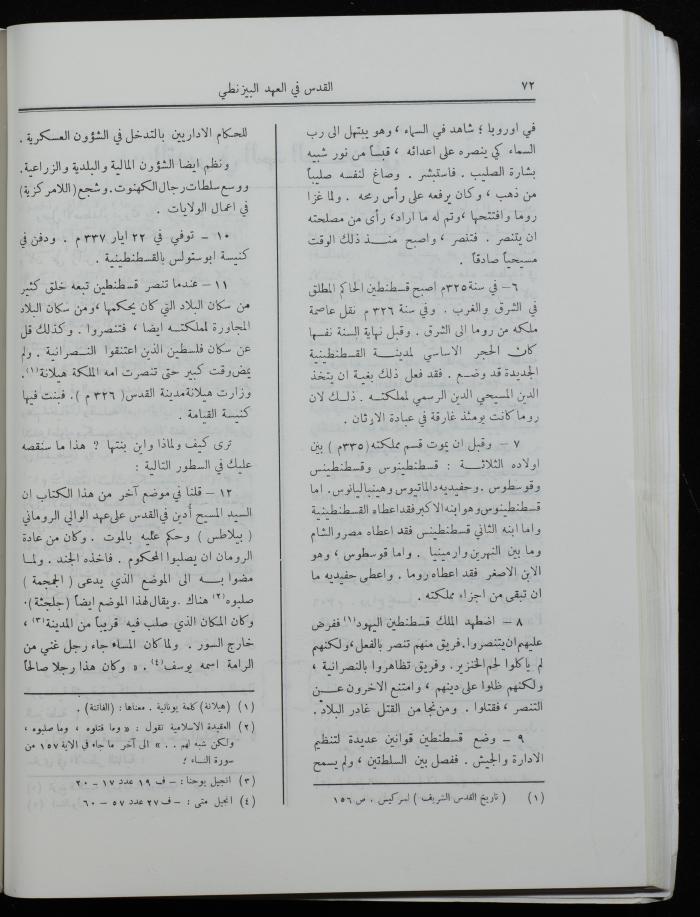 ٧٢
القدس في العهد البيزنطي
في اوروبا ؛ شاهد في السماء ، وهو يبتهل الى رب
السماء كي ينصره على اعدائه ، قبساً من نور شبيه
بشارة الصليب . فاستبشر . وصاغ لنفسه صليباً
من ذهب ، وكان يرفعه على رأس رمحه . ولما غزا
روما وافتتحها ، وتم له ما اراد، رأى من مصلحته
ان يتنصر . فتنصر ، واصبح منـــذ ذلك الوقت
مسيحياً صادقاً .
٦ - في سنة ٣٢٥م اصبح قسطنطين الحاكم المطلق
في الشرق والغرب . وفي سنة ٣٢٦ م نقل عاصمة
ملكه من روما الى الشرق . وقبل نهاية السنة نفسها
كان الحجر الاساسي لمدينــة القسطنطينية
الجديدة قد وضع . فقد فعل ذلك بغية ان يتخذ
الدين المسيحي الدين الرسمي لمملكته . ذلــك لان
روما كانت يومئذ غارقة في عبادة الاوثان .
٧ - وقبل ان يموت قسم مملكته (٣٣٥م ) بين
اولاده الثلاثــة : قسطنطينوس وقسطنطينس
وقوسطوس . وحفيديه دالماتيوس وهينباليانوس. اما
قسطنطينوس وهو ابنه الاكبر فقد اعطاه القسطنطينية
واما ابنه الثاني قسطنطينس فقد اعطاه مصر والشام
وما بين النهرين وارمينيا . واما قوسطوس ، وهو
الابن الاصغر فقد اعطاه روما . واعطى حفيديه ما
ان تبقى من اجزاء مملكته .
٨ - اضطهد الملك قسطنطين اليهود(١) ففرض
عليهم ان يتنصروا. فريق منهم تنصر بالفعل، ولكنهم
لم يأكلوا لحم الخنزير. وفريق تظاهروا بالنصرانية ،
ولكنهم ظلوا على دينهم ، وامتنع الاخرون عـــن
التنصر ، فقتلوا . ومن نجا من القتل غادر البلاد .
٩ - وضع قسطنطين قوانين عديدة لتنظيم
الادارة والجيش . ففصل بين السلطتين ، ولم يسمح
(١) ( تاريخ القدس الشريف ) لسركيس . ص ١٥٦
للحكام الاداريين بالتدخل في الشؤون العسكرية .
ونظم ايضا الشؤرن المالية والبلدية والزراعية.
ووسع سلطات رجال الكهنوت. وشجع (اللامركزية)
في اعمال الولايات .
١٠ - توفي في ٢٢ ايار ٣٣٧ م . ودفن في
كنيسة ابوستولس بالقسطنطينية .
١١ - عندما تنصر قسطنطين تبعه خلق كثير
من سكان البلاد التي كان يحكمها ، ومن سكان البلاد
المجاورة لمملكتــه ايضا ، فتنصروا . وكذلك قل
عن سكان فلسطين الذين اعتنقوا النــصرانية . ولم
يمض وقت كبير حتى تنصرت امه الملكة هيلانة(١).
وزارت هيلانة مدينة القدس ( ٣٢٦ م ). فبنت فيها
كنيسة القيامة .
ترى كيف ولماذا واين بنتها ? هذا ما سنقصه
عليك في السطور التالية :
١٢ - قلنا في موضع آخر من هذا الكتاب ان
السيد المسيح أدين في القدس على عهد الوالي الروماني
( بيلاطس ) وحكم عليه بالموت . وكان من عادة
الرومان ان يصلبوا المحكوم . فاخذه الجند . ولمــا
مضوا بـــه الى الموضع الذي يدعى ( الجمجمة )
صلبوه(٢) هناك . ويقال لهذا الموضع ايضاً ( جلجثة ).
وكان المكان الذي صلب فيه قريباً من المدينة(٣) ،
خارج السور . ولما كان المساء جاء رجل غني من
الرامة اسمه يوسف(٤) . « وكان هذا رجلا صالحاً
(١) (هيلانة) كلمة يونانية . معناها : (الفاتنة) .
(٢) العقيدة الاسلامية تقول : « وما قتلوه ، وما صلبوه ،
ولكن شبه لهم . . » الى آخر ما جاء في الاية ١٥٧ من
سورة النساء ؛
(٣) انجيل يوحنا : - ف ١٩ عدد ١٧ - ٢٠
(٤) انجيل متى : - ف ٢٧ عدد ٥٧ - ٦٠